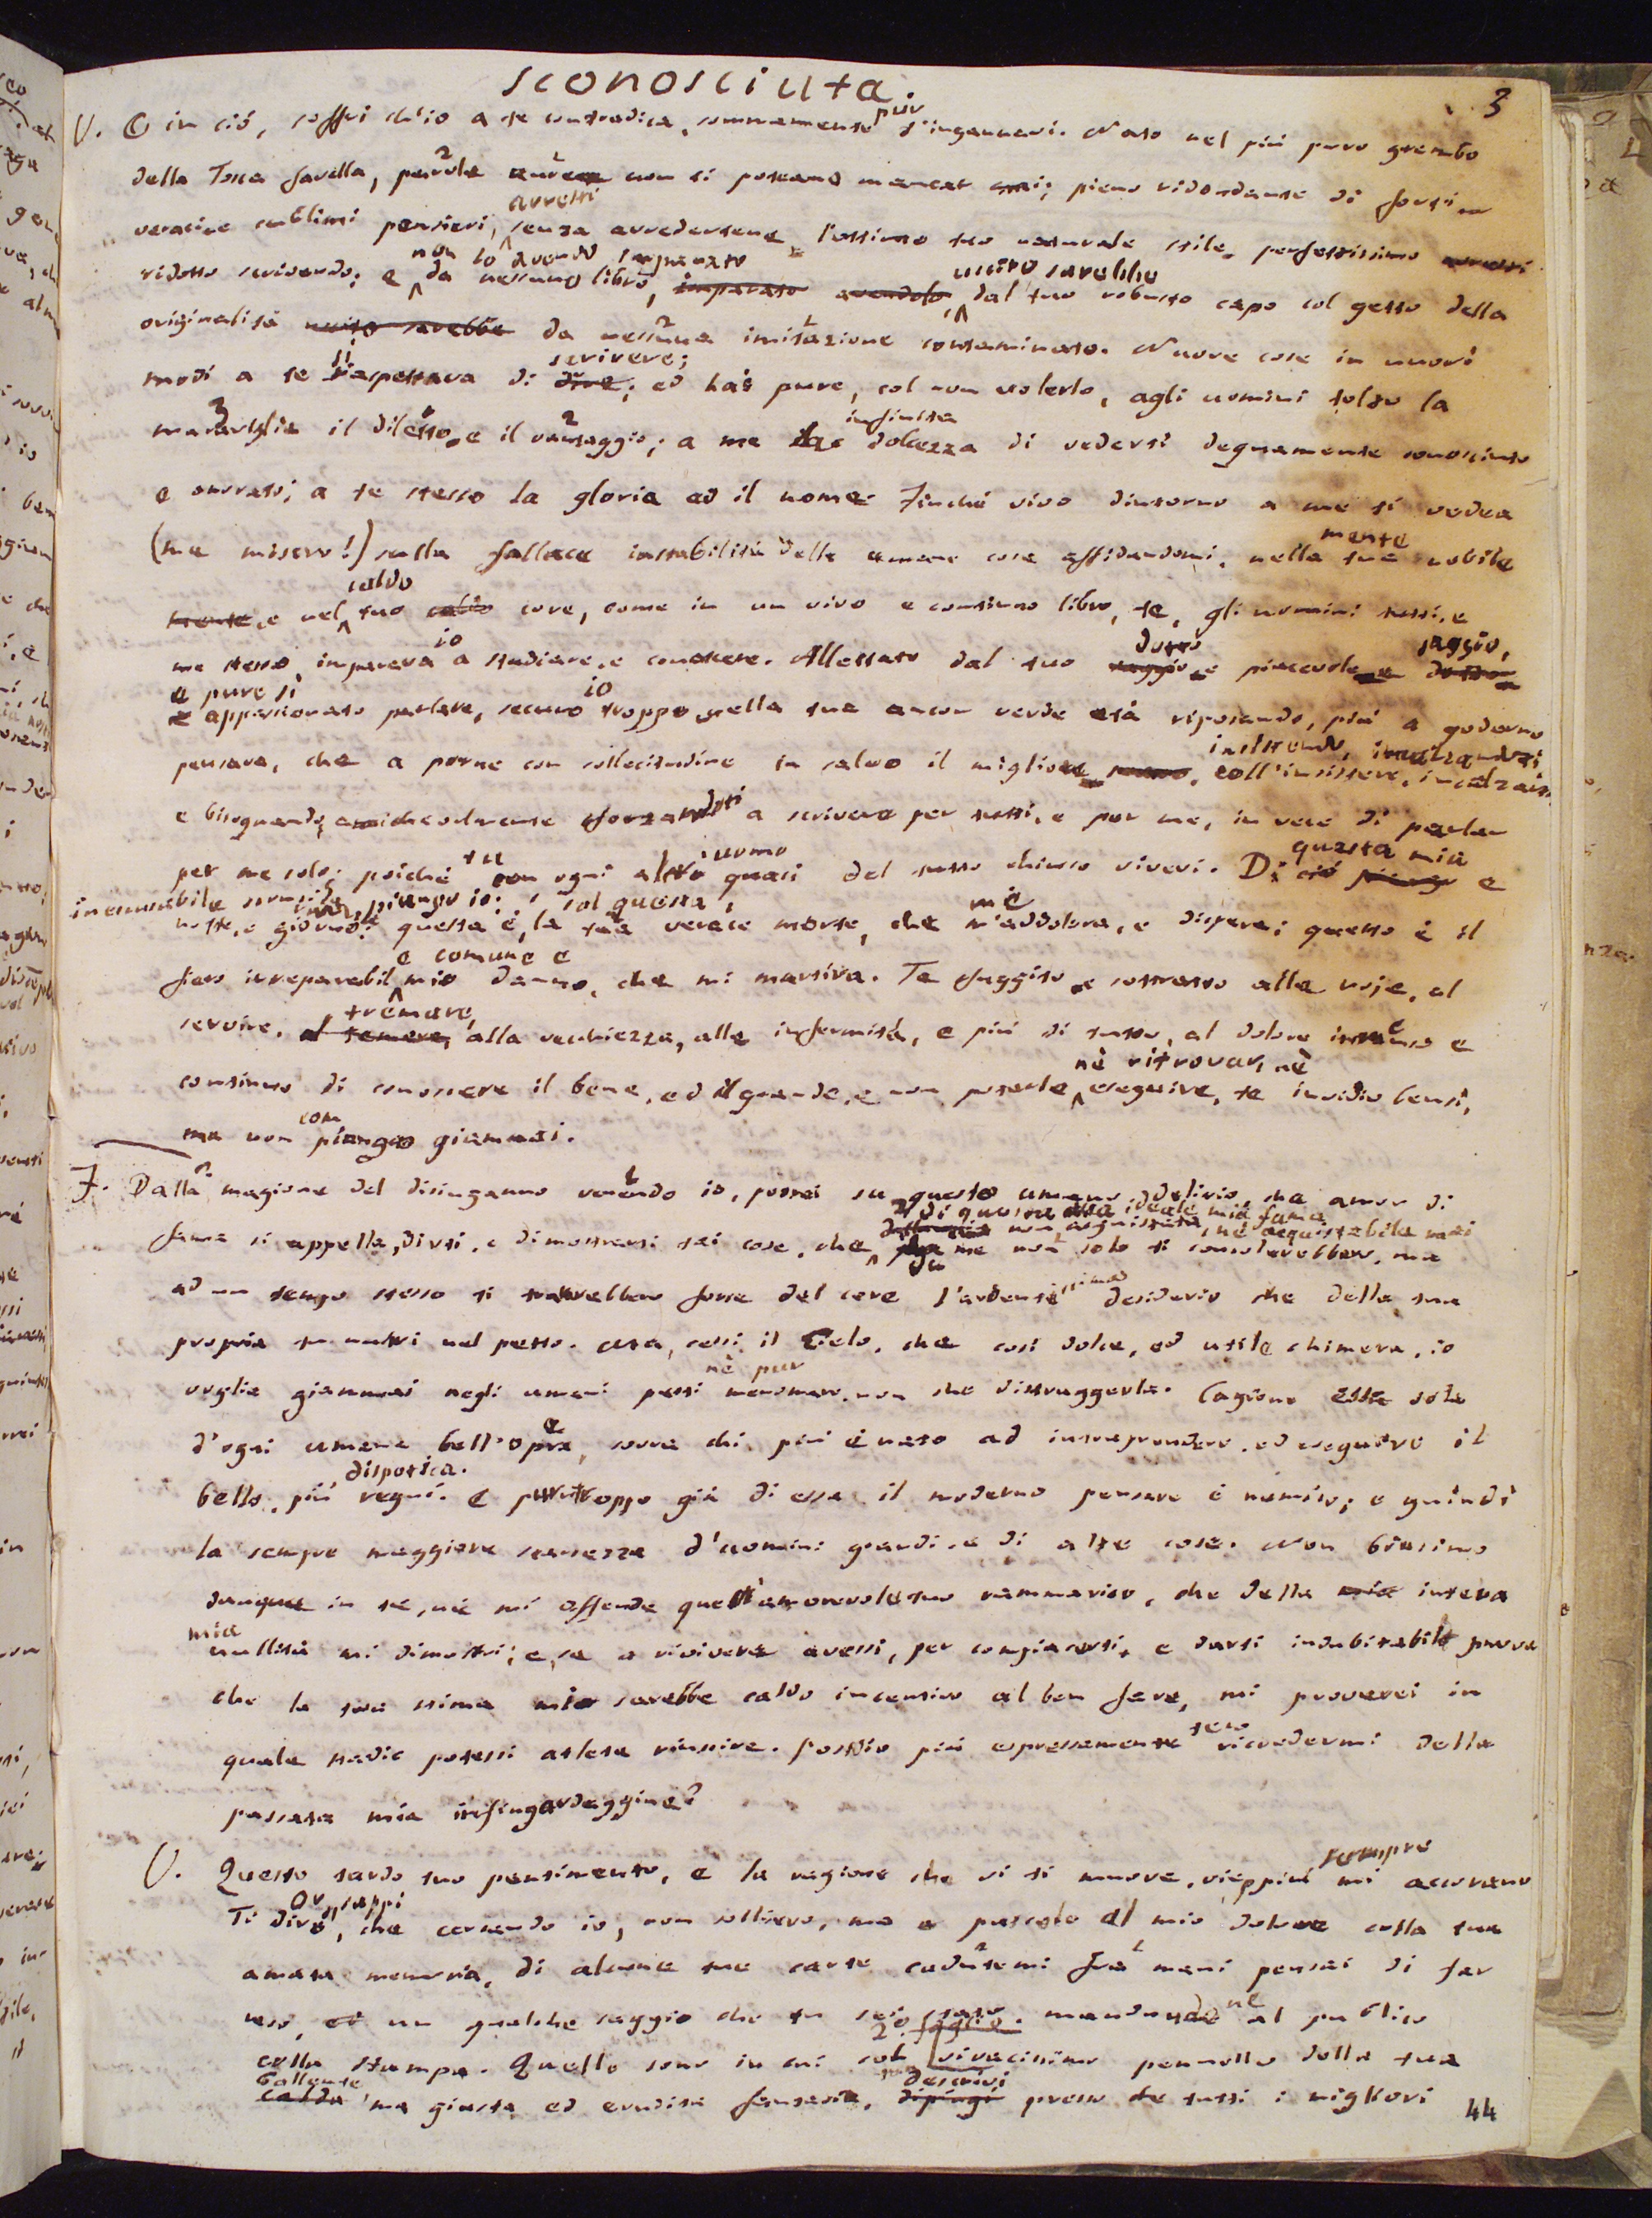 sconosciuta.
3
V. O in ciò, soffri ch'io a te contradica, sommamente pur t'inganavi. Nato nel più puro grembo
della Tosca favella, parole non ti poteano mancar mai; pieno ridondante di forti
veraci e sublimi pensieri, avresti senza avvedertene l'ottimo tuo naturale stile perfettissimo avresti
ridotto scrivendo; e non lo avendo imparato da nessuno libro, imparato avendolo, uscito sarebbe dal tuo robusto capo col getto della
originalità uscito sarebbe da nessuna imitazione contaminato. Nuove cose in nuovi
modi a te s'aspettava di dire scrivere; ed hai pure, col non volerlo, agli uomini tolto la
maraviglia il diletto e il vantaggio; a me la infinita dolcezza di vederti degnamente conosciuto
e onorato; a te stesso la gloria ed il nome. Finché vivo dintorno a me ti vedea
(me misero!) sulla fallace instabilità delle umane cose affidandomi, nella tua mente nobile
mente, e nel caldo tuo core, come in un vivo e continuo libro, te, gli uomini tutti, e
me stesso, imparava io a studiare, e conoscere. Allettato dal tuo dotto saggio e piacevole e saggio, dotto
e pure sì appassionato parlare, securo io troppo nella tua ancor verde età riposando, più a goderne
pensava, che a porne con sollecitudine in salvo il migliore coll'insistere, incalzarti
e bisognando, amichevolmente sforzandoti a scrivere per tutti, e per me, in vece di parlar
per me solo; poiché tu con ogni altro uomo quasi del tutto chiuso vivevi. Di ciò piango e questa mia
inescusabile piango io; sol questa
notte, e giorno; questa è la tua verace morte, che me m'addolora, e dispera; questo è il
fero irreparabil e comune e mio danno, che mi martira. Te fuggito e sottratto alle noje, al
servire, al temere, tremare, alla vecchiezza, alle infermità, e più di tutto, al dolore immenso e
continuo di conoscere il bene, ed il grande, e non poterlo nè ritrovar, nè eseguire, te invidio bensì,
ma non compiango giammai.
F. Dalla magione del disinganno venendo io, potrei su questo umano delirio, che amor di
fama si appella, dirti, e dimostrarti tai cose, che di questa ideale mia fama non acquistata, nè acquistabile mai me non solo ti consolerebbero, ma
ad un tempo stesso ti trarrebbero forse del core l'ardentissimo desiderio che della tua
propria tu nutri nel petto. Ma, cessi il Cielo, che così dolce, ed utile chimera, io
voglia giammai negli umani petti nè pur menomare, non che distruggerla. Cagione essa sola
d'ogni umana bell'opra, sovra chi più è nato ad intraprendere, ed eseguire il
bello, più regni dispotica. E purtroppo già di essa il moderno pensare è nemico; e quindi
la sempre maggiore scarsezza d'uomini grandi, e di alte cose. Non biasimo
dunque in te, né mi offende quell'amorevole tuo rammarico, che della mia intera
mia nullità mi dimostri; e, se a rivivere avessi, per compiacerti, e darti indubitabile prova
che la tua stima mio sarebbe caldo incentivo al ben fare, mi proverei in
quale stadio potessi atleta riuscire. Poss'io più espressamente teco ricredermi della
passata mia infingardaggine?
V. Questo tardo tuo pentimento, e la ragione che vi ti muove, vieppiù sempre mi accorano
Ti dirò, Or, sappi che cercando io, non sollievo, ma e pascolo al mio dolore colla tua
amata memoria, di alcune tue carte cadutemi fra mani pensai di far
un qualche saggio che tu sei stato, mandandone al publico
colla stampa. Quello sono in cui col vivacissimo pennello della tua
calda bollente ma giusta ed erudita fantasia, dipingi descrivi presso che tutti i migliori
44